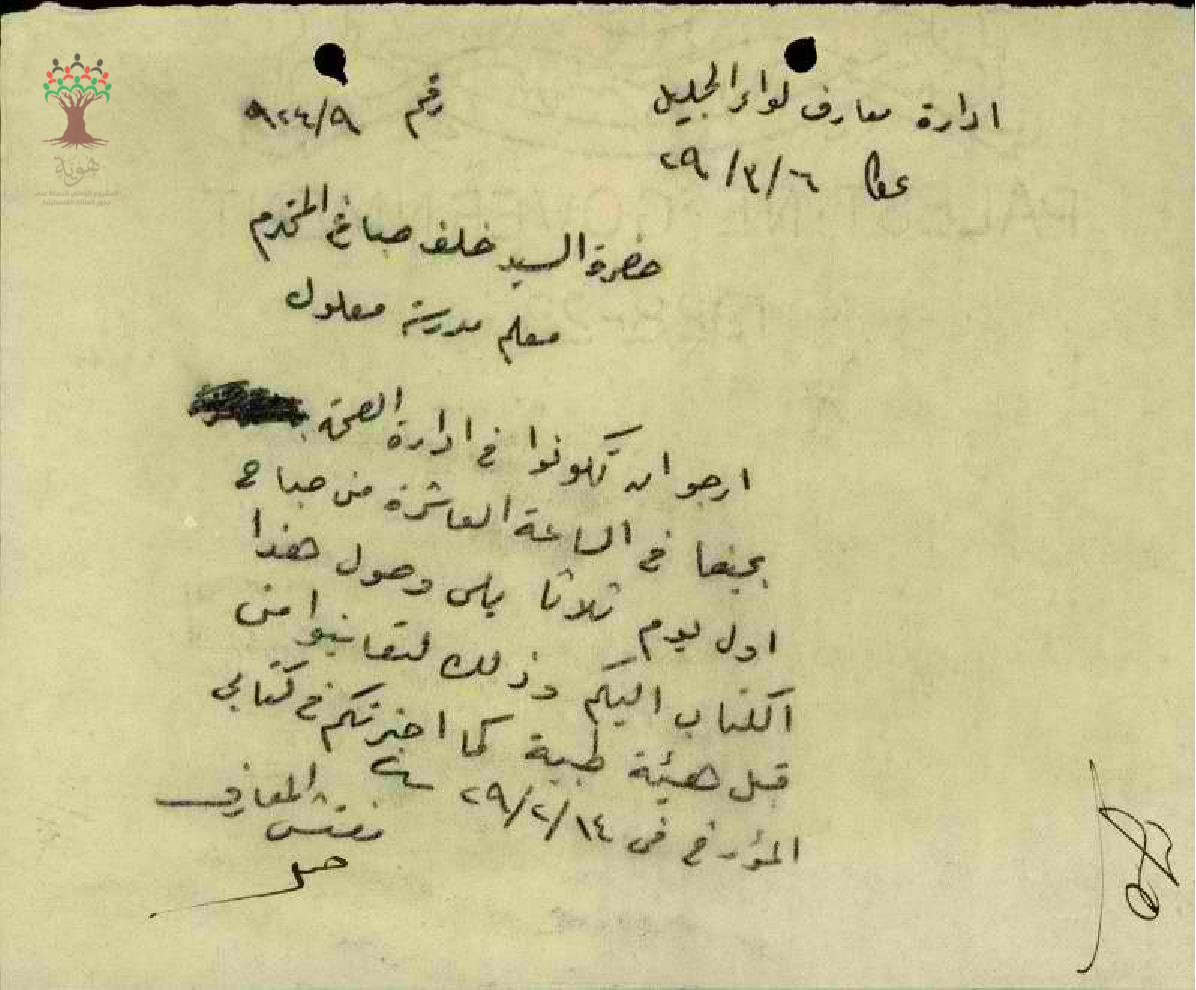 ادارة معارف لواء الجليل
رقم ٩٢٤/٩
عكا ٢٩/٣/٦
حضرة السيد خلف صباغ المحترم
معلم مدرسة معلول
ارجو ان تكونوا في ادارة الصحة
بحيفا في الساعة العاشرة من صباح
اول يوم ثلاثا يلي وصول هذا
الكتاب اليكم وذلك لتعاينوا من
قبل هيئة طبية كما اخبرتكم في كتابي
المؤرخ في ٢٩/٢/١٤
مفتش المعارف
هوية
المشروع الوطني للحفاظ على
جذور العائلة الفلسطينية